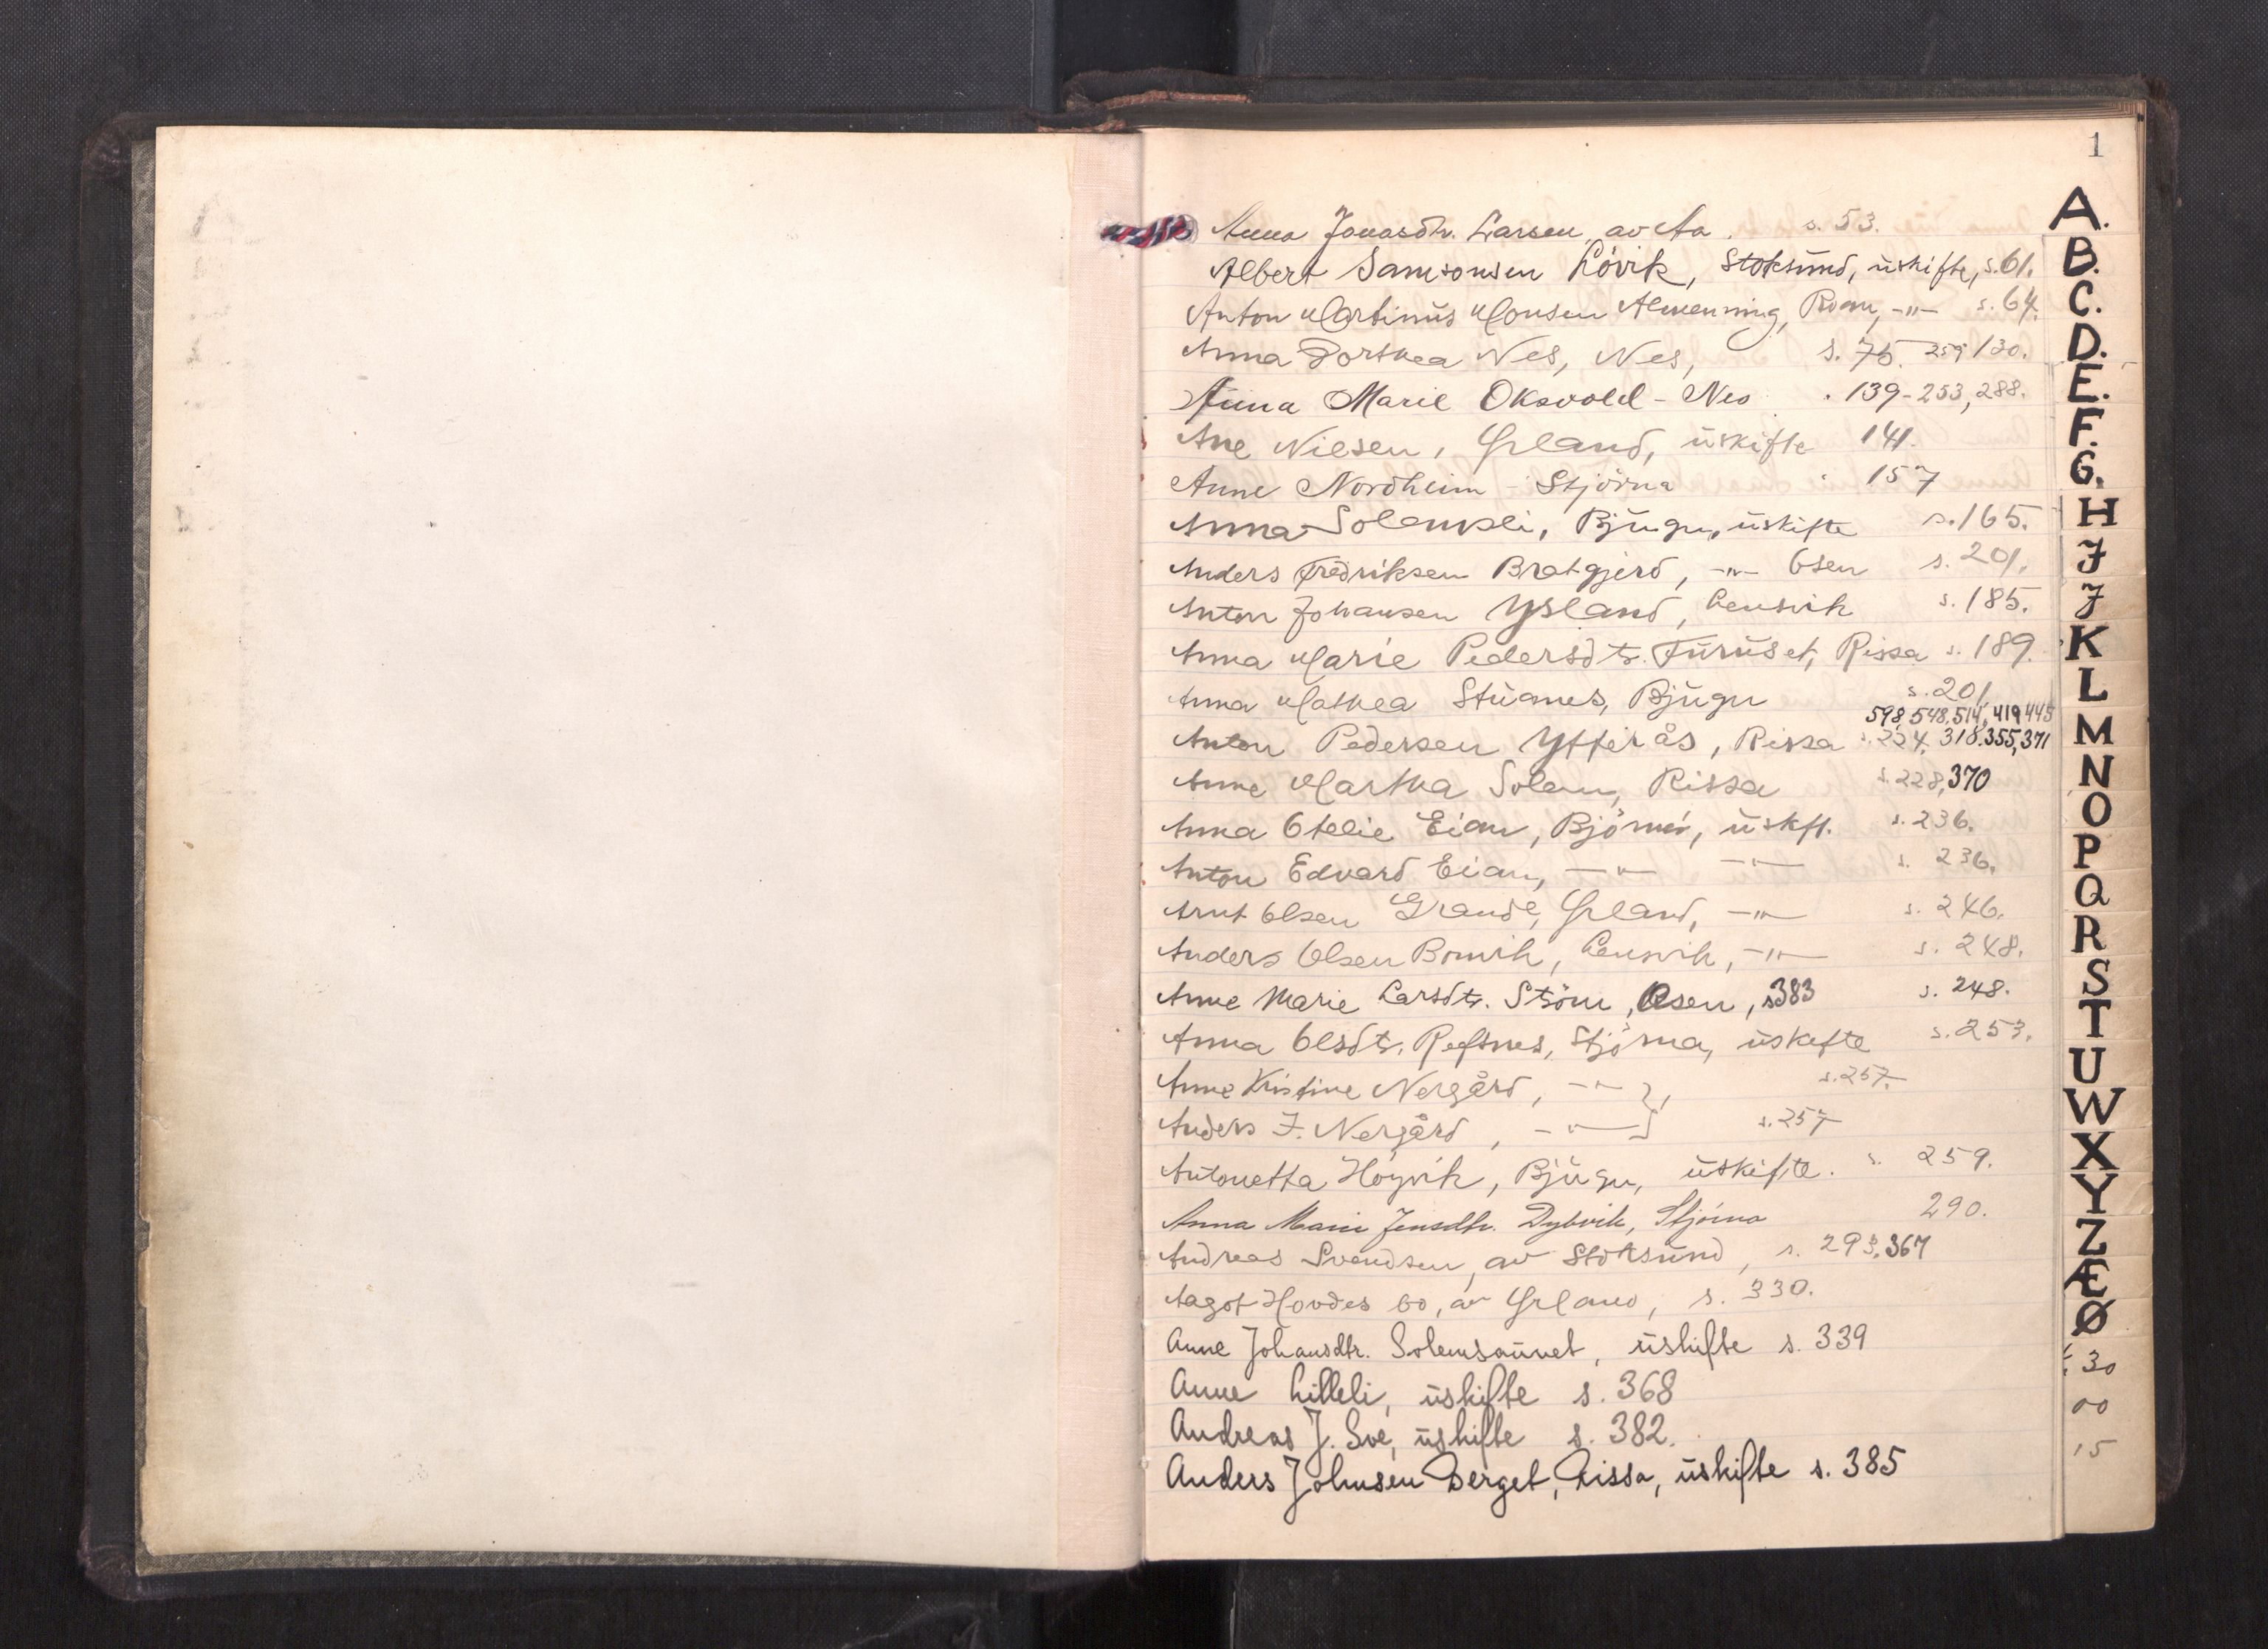 1
Anna Jonasdtr. Larsen, av Aa. s. 53.
Albert Samsonsen Løvik, Stoksund, uskifte, s. 61.
Anton Martinus Monsen Almenning, Roan, -"- s. 64.
Anna Dorthea Nes, Nes, s. 75. 259 130.
Anna Marie Oksvold - Nes 139-253, 288.
Ane Nilsen, Ørland, uskifte 141.
Anne Nordheim - Stjørna 157
Anna Solemsli, Bjugn, uskifte s. 165.
Anders Fredriksen Bratgjerd, -"- Osen s. 201.
Anton Johansen Ysland, Lensvik s. 185.
Anna Marie Pedersdtr. Furuset, Rissa s. 189.
Anna Mathea Stuanes, Bjugn s. 201
598, 548, 514, 419, 445
Anton Pedersen Ytterås, Rissa s. 224, 318, 355, 371
Anne Martha Solem, Rissa s. 228, 370
Anna Otelie Eian, Bjørnør, uskft. s. 236.
Anton Edvard Eian, -"- -"- s. 236.
Arnt Olsen Grande, Ørland, -"- s. 246.
Anders Olsen Bonvik, Lensvik, -"- s. 248.
Anne Marie Larsdtr. Strøm, Osen, s 383 s. 248.
Anna Olsdtr. Refsnes, Stjørna, uskifte s. 253.
Anne Kristine Nergård, -"- }, s. 257.
Anders J. Nergård, -"- } s. 257
Antonetta Høyvik, Bjugn, uskifte. s. 259.
Anna Marie Jensdtr. Dybvik, Stjørna 290.
Andreas Svendsen, av Stoksund, s. 293, 367
Aagot Hovdes bo, av Ørland, s. 330.
Anne Johansdtr. Solemsaunet, uskifte s. 339
Anne Lilleli, uskifte s. 368
Andreas J. Sve, uskifte s. 382.
Anders Johnsen Berget, Rissa, uskifte s. 385
A.
B.
C.
D.
E.
F.
G.
H
I
J
K
L
M
N
O
P
Q
R
S
T
U
W
X
Y
Z
Æ
Ø
30
00
15